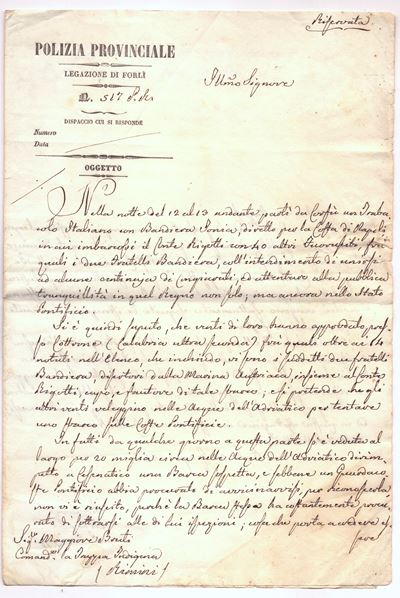 Riservata
POLIZIA PROVINCIALE
LEGAZIONE DI FORLÌ
N. 517 P. Ris.
Illmo Signore
DISPACCIO CUI SI RISPONDE
Numero
Data
OGGETTO
Nella notte del 12 al 13 andante partì da Corfù un Traba-
colo Italiano con Bandiera Jonia, diretto per la Costa di Napoli
in cui imbarcossi il Conte Rigotti con 40 altri Fuorusciti, fra i
quali i due Fratelli Bandiera, coll'intendimento di unirsi
ad alcune centinaja di Congiurati, ed attentare alla pubblica
tranquillità in quel Regno non solo; ma ancora nello Stato
Pontificio.
Si è quindi saputo, che venti di loro hanno approdato, pres-
so Cottrone (Calabria ultra seconda) fra i quali oltre ai 14
notati nell'Elenco, che inchiudo, vi sono i suddetti due fratelli
Bandiera, disertori dalla Marina Austriaca insieme al Conte
Rigotti, capo, e fautore di tale sbarco; e si pretende che gli
altri venti veleggino nelle Acque dell'Adriatico per tentare
uno sbarco sulle Coste Pontificie.
In fatti da qualche giorno a questa parte si è veduta al
largo per 20 miglia circa nelle Acque dell'Adriatico dirim-
petto a Cesenatico una Barca sospetta, e sebbene un Guardaco-
ste Pontificio abbia procurato di avvicinarvisi, per riconoscerla
non vi è riuscito, perchè la Barca stessa ha costantemente procu-
rato di sottrarsi alle di lui ispezioni; cosa che porta a credere es-
sere
Sigr. Maggiore
Comande. la Truppa Indigena
(Rimini)